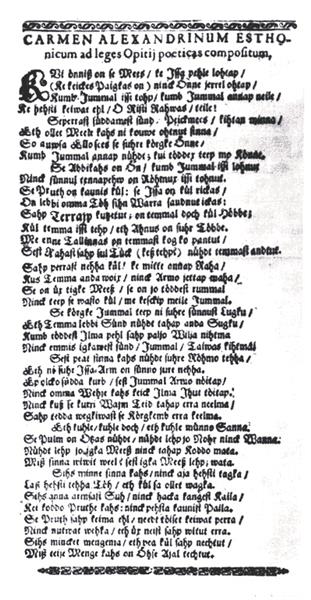 CARMEN ALEXANDRINUM ESTHO-
nicum ad leges Opitij poëticas compositum,
KUi önniß on se Mees / ke Issa pehle lohtap /
(Ke keickes Paigkas on) ninck Önne jerrel ohtap /
Kumb Jummal issi tehp / kumb Jummal annap neile /
Ke hehsti keiwat ehl / O Risti Rahwas / teile!
Seperrast süddamest sünd. Peickmees / kihtan minna /
Eth ollet Meele kahs ni kouwe ohtnut sinna /
So auwsa Ello se se suhre körgke Önne /
Kumb Jummal annap nühdt; kui töddex teep my Könne.
Se Abbikahs on On / kumb Jummal issi lohnut
Ninck sünnul tennapehw on Röhmux issi tohnut.
Se Pruth on kaunis kül: se Issa on kül rickas /
On lebbi omma Töh sihn Warra saudnut ickas:
Sahp Terrasp kutzetut; on temmal doch kül Höbbe;
Kül temma issi tehp / eth Ahnus on suhr Többe.
Me enne Tallinnas on temmast kog ko pantut /
Sest Rahast sahp sul Tück (keß tehp) nühdt temmast andtut.
Sahp perrast nehha kül! ke mitte annap Raha /
Kus Temma anda woix / ninck Armo jettap waha /
Se on üx tigke Meeß / se on jo töddest rummal
Ninck teep se wasto kül / me keskip meile Jummal.
Se körgke Jummal teep ni suhre sünnust Lugku /
Eth Temma lebbi Sünd nühdt tahap anda Sugku /
Kumb töddest Ilma pehl sahp paljo Wilja nihtma
Ninck emmis igkawest sünd / Jummal / Taiwas kihtma
Sest peat sinna kahs nühdt suhre Röhmo tehha /
Eth ni suhr Issa-Arm on sunno jure nehha.
Ep olcko södda kurb / sest Jummal Armo nöitap /
Ninck omma Wehje kahs keick Ilma Jhut töitap.
Ninck kuß se kurri Wajm Teid tahap erra neelma /
Sahp tedda wegkiwast se Körgkemb erra keelma.
Eth kuhle / kuhle doch / eth kuhle münno Sanna.
Se Pulm on Otzas nühdt / nühdt lehp jo Nohr ninck Wanna.
Nühdt lehp jo igka Meeß ninck tahap Koddo mata.
Miß sinna wiwit weel? sest igka Meeß lehp; wata.
Sihs minne sinna kahs / ninck aja hehsti tagka /
Laß hehsti tehha Töh / eth kül sa ollet wagka.
Sihs anna armsast Suh / ninck hacka kangest Kaila /
Kei koddo Pruthe kahs: ninck pehsta kaunist Paila.
Se Pruth sahp keima ehl / neebt töiset keiwat perra /
Ninck nutwat wehka / eth üx neist sahp witut erra.
Sihs mincket mengema / eth pea kül sahp nechtut
Miß teije Menge kahs on Öhse Ajal techtut.